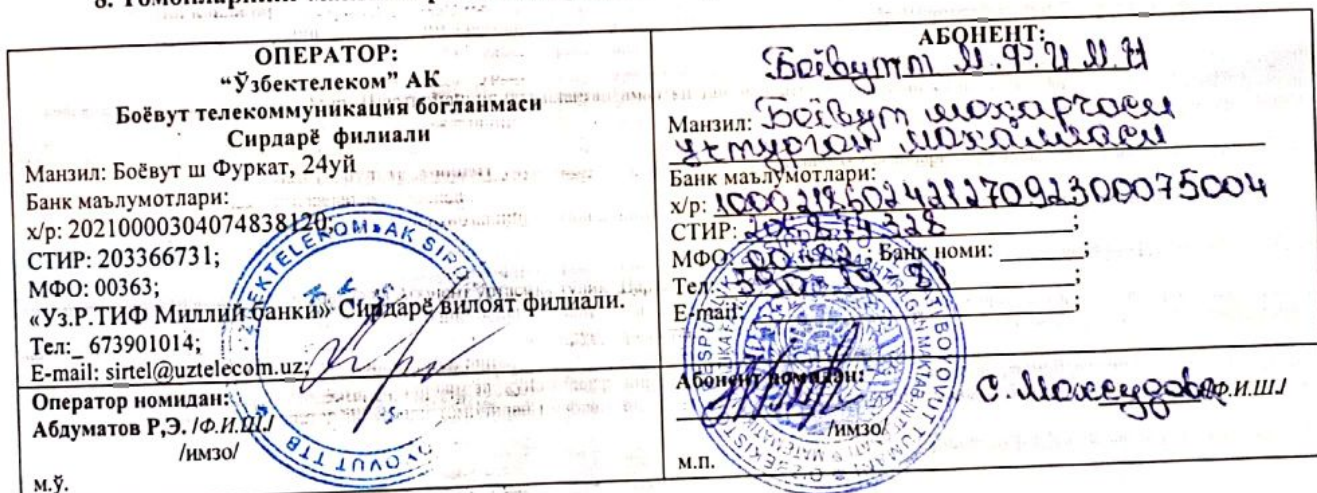 8. Томонларнинг
ОПЕРАТОР:
“Ўзбектелеком” АК
Боёвут телекоммуникация боғланмаси
Сирдарё филиали
Манзил: Боёвут ш Фуркат, 24уй
Банк маълумотлари:
х/р: 20210000304074838120;
СТИР: 203366731;
МФО: 00363;
«Уз.Р.ТИФ Миллий банки» Сирдарё вилоят филиали.
Тел:_ 673901014;
E-mail: sirtel@uztelecom.uz;
Оператор номидан:
Абдуматов Р,Э. /Ф.И.Ш./
/имзо/
м.ў.
АБОНЕНТ:
Боёвутт М.Ф.И.М.И
Манзил: Боёвут
махалласи
Банк маълумотлари:
х/р: 100021860242127092300075004
СТИР:
МФО: ; Банк номи: ;
Тел: ;
E-mail: ;
Абонент номидан:
С. Махсудов /Ф.И.Ш./
/имзо/
м.п.